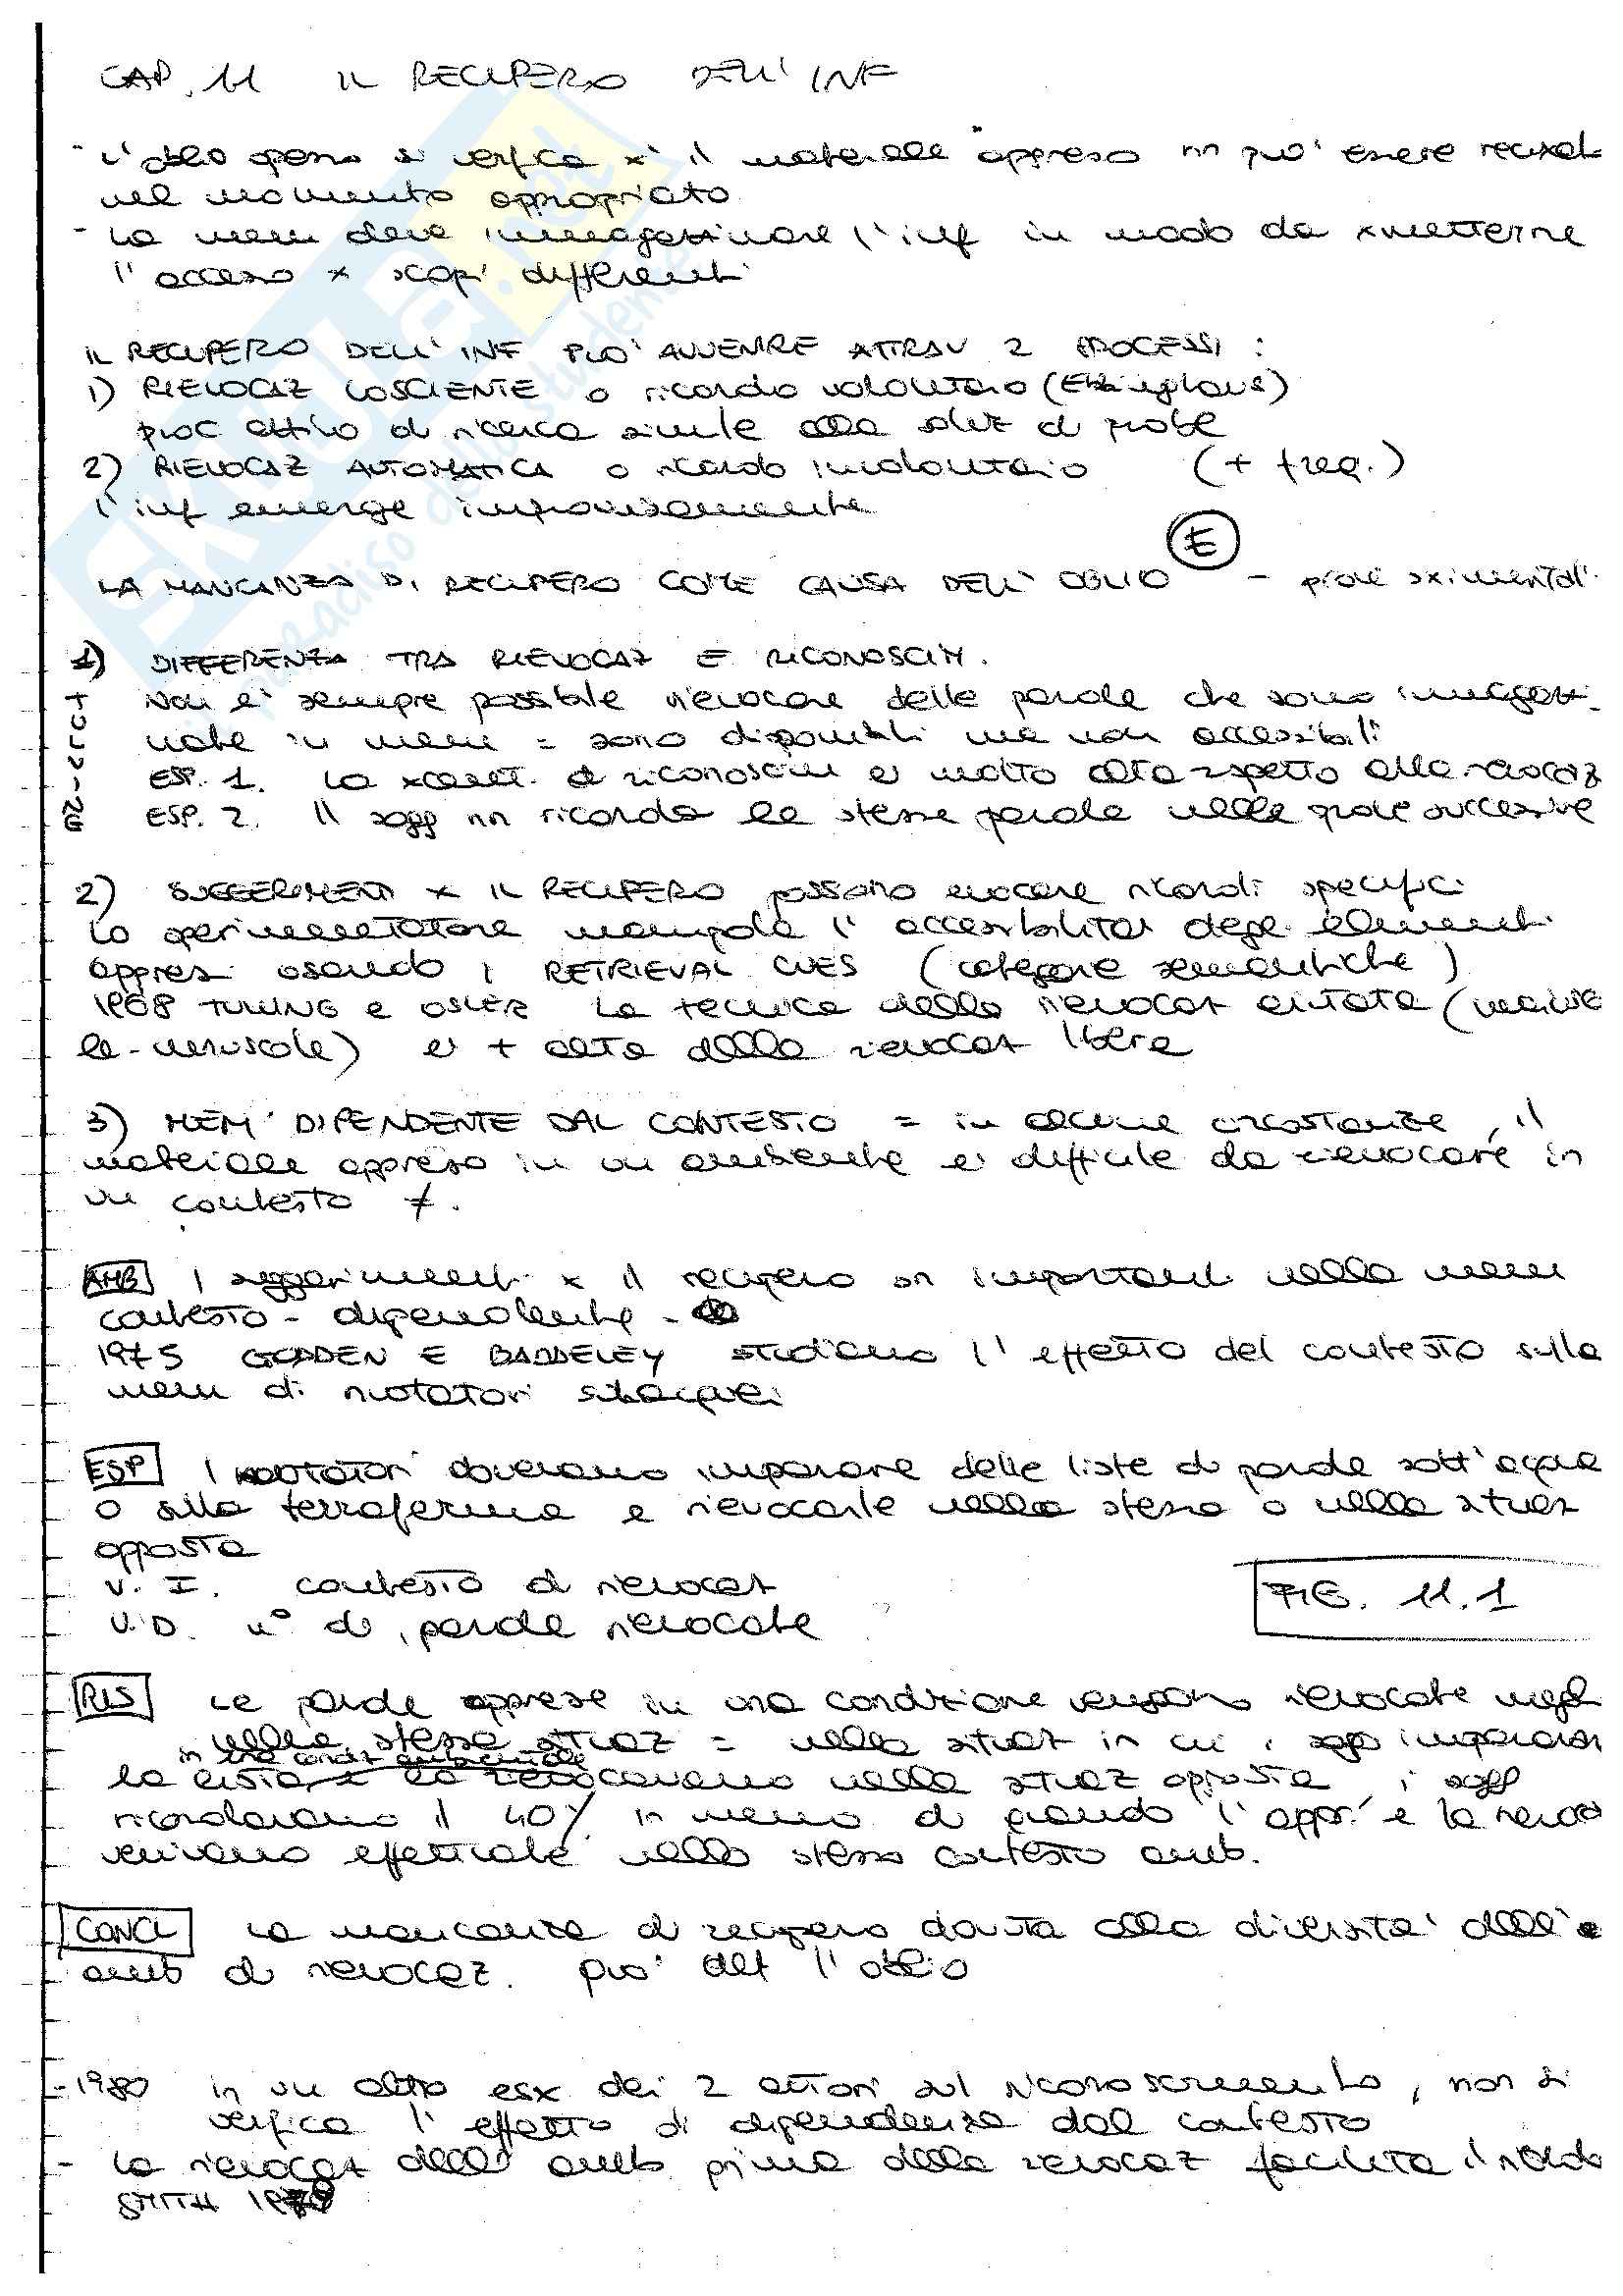 CAP. 11 IL RECUPERO DELL' INF
- L'oblio spesso si verifica x' il materiale appreso nn può essere recuxat
nel momento appropriato
- La mem deve immagazzinare l'inf in modo da xmetterne
l'accesso x scopi differenti
IL RECUPERO DELL' INF PUO' AVVENIRE ATTRAV 2 PROCESSI :
1) RIEVOCAZ COSCIENTE o ricordo volontario (Ebbinghaus)
proc attivo di ricerca simile alla soluz di probl
2) RIEVOCAZ AUTOMATICA o ricordo involontario (+ freq.)
l'inf emerge improvvisamente
E
LA MANCANZA DI RECUPERO COME CAUSA DELL' OBLIO - prove sximentali
1) DIFFERENZA TRA RIEVOCAZ E RICONOSCIM.
Non è sempre possibile rievocare delle parole che sono immagazzi-
nate in mem = sono disponibili ma non accessibili
ESP. 1. La xcent. di riconoscim è molto alta rispetto alla rievocaz
ESP. 2. Il sogg nn ricorda le stesse parole nelle prove successive
2) SUGGERIMENTI x IL RECUPERO possono evocare ricordi specifici
Lo sperimentatore manipola l'accessibilità degli elementi
appresi usando i RETRIEVAL CUES (categorie semantiche)
1968 TULVING e OSLER La tecnica della rievocaz aiutata
è + alta della rievocaz libera
3) MEM' DIPENDENTE DAL CONTESTO = in alcune circostanze, il
materiale appreso in un ambiente è difficile da rievocare in
un contesto ≠.
AMB I suggerimenti x il recupero sn importanti nella mem
contesto - dipendente -
1975 GODDEN E BADDELEY studiano l'effetto del contesto sulla
mem di nuotatori subacquei
ESP I nuotatori dovevano imparare delle liste di parole sott'acqua
o sulla terraferma e rievocarle nella stessa o nella situaz
opposta
V. I. contesto di rievocaz
V.D. n° di parole rievocate
FIG. 11.1
RIS Le parole apprese in una condizione vengono rievocate megl
nella stessa situaz = nella situaz in cui i sogg imparavan
in una condiz ambientale
la lista e la rievocavano nella situaz opposta i sogg
ricordavano il 40% in meno di quando l'appr. e la rievoc
venivano effettuate nello stesso contesto amb.
CONCL La mancanza di recupero dovuta alla diversità dell'
amb di rievocaz. può det l'oblio
- 1980 in un altro esx dei 2 autori sul riconoscimento, non si
verifica l'effetto di dipendenza dal contesto
- La rievocaz dell' amb prima della rievocaz facilita il ricordo
SMITH